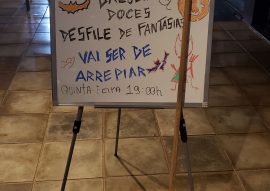 DOCES
DESFILE DE FANTASIAS
VAI SER DE
ARREPIAR
QUINTA FEIRA 19:00h